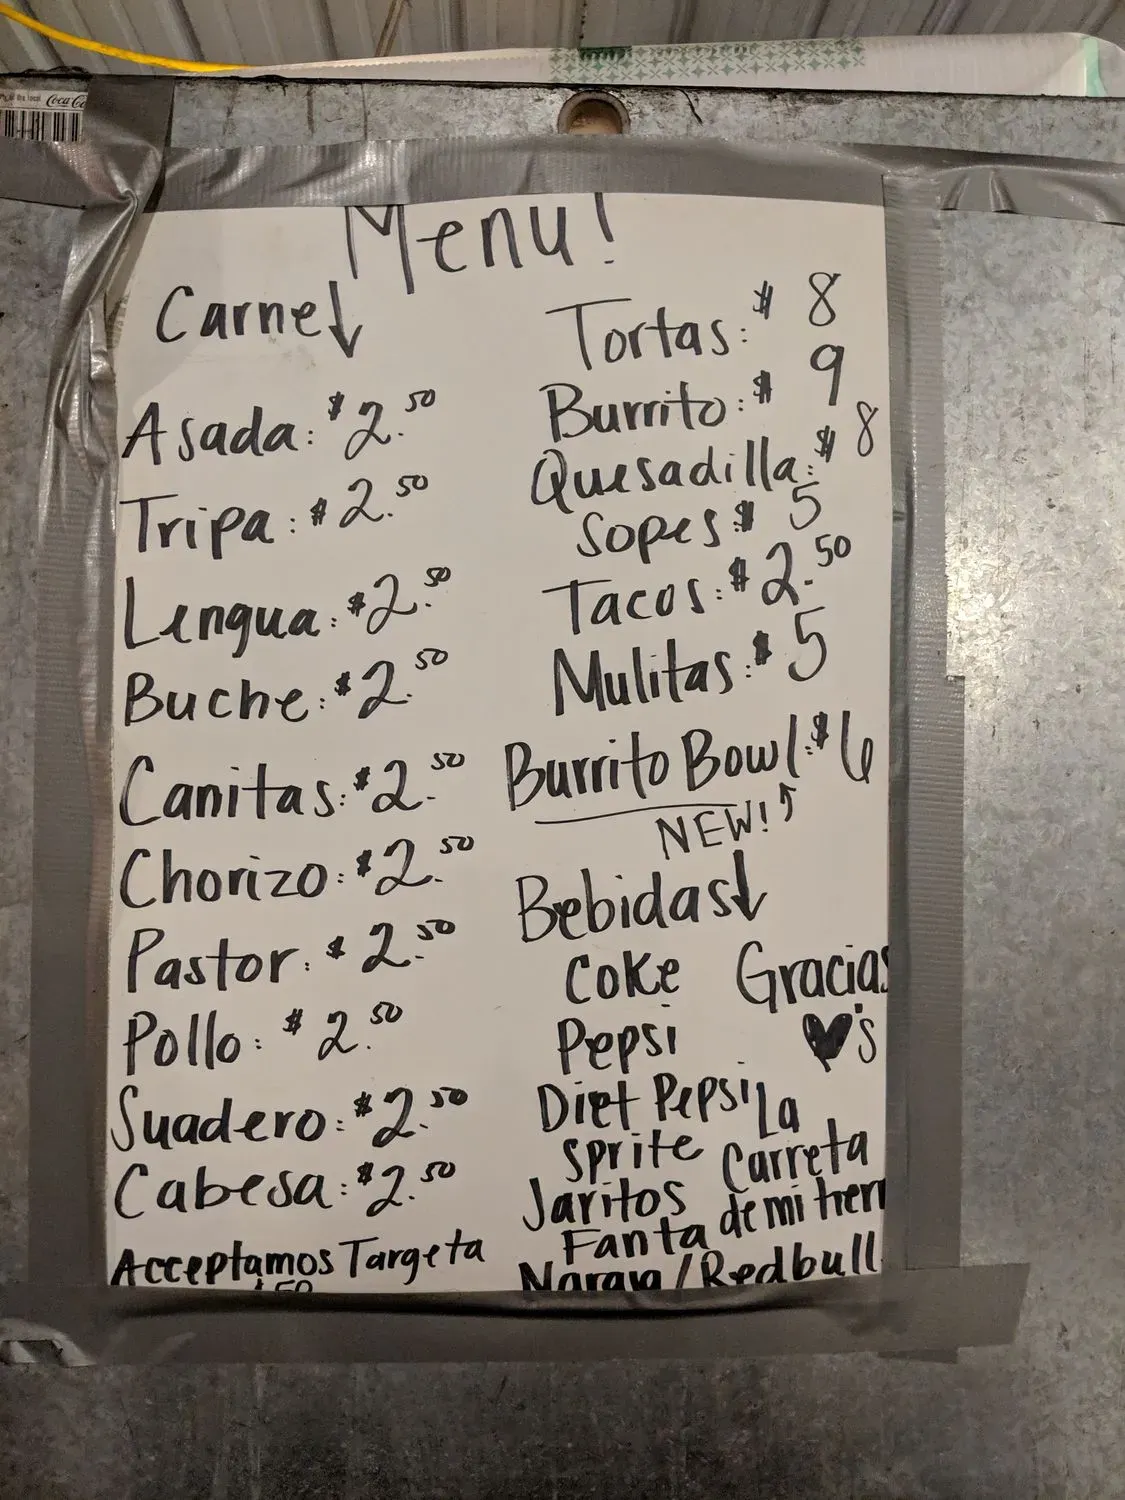 Coca-Co
Menu!
Carne↓
Asada: $2.50
Tripa: $2.50
Lengua: $2.50
Buche: $2.50
Canitas: $2.50
Chorizo: $2.50
Pastor: $2.50
Pollo: $2.50
Suadero: $2.50
Cabesa: $2.50
Acceptamos Targeta
$.50
Tortas: $8
Burrito: $9
Quesadilla: $8
Sopes $5
Tacos: $2.50
Mulitas: $5
Burrito Bowl: $6
NEW!
Bebidas↓
Coke
Pepsi
Diet Pepsi
Sprite
Jaritos
Fanta
Naranja/Redbull
Gracias
♥'s
La
Carreta
de mi tierr